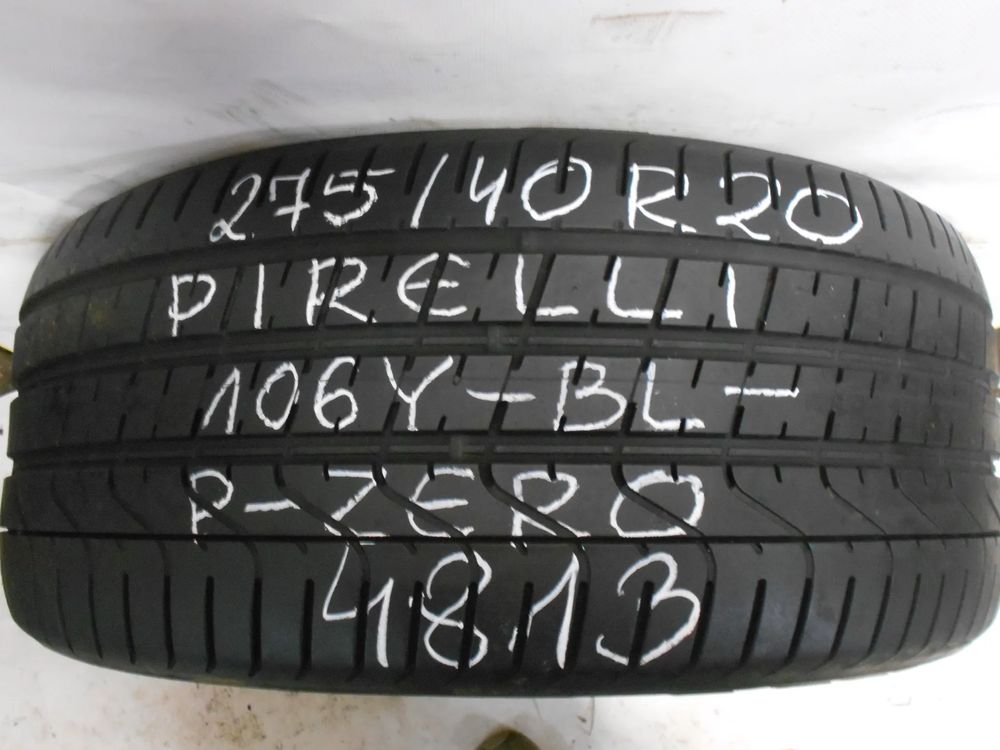 275/40 R20
PIRELLI
106Y-BL-
P-ZERO
4813